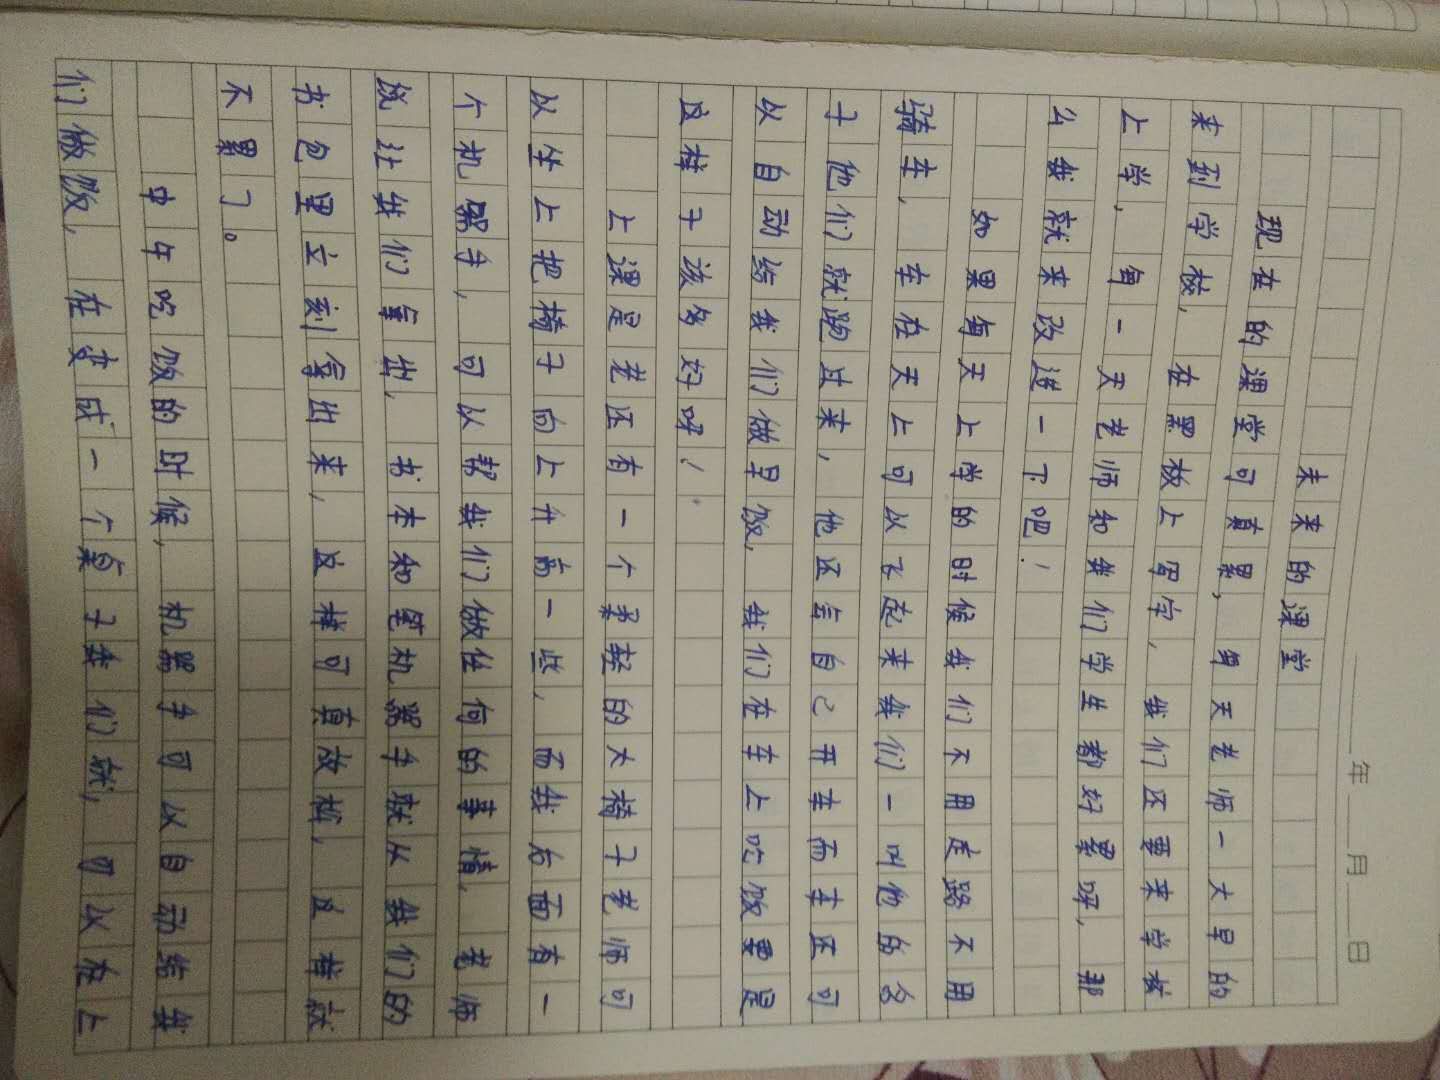 年 月 日
未来的课堂
现在的课堂可真累，每天老师一大早的
来到学校，在黑板上写字，我们还要来学校
上学，每一天老师和我们学生都好累呀，那
么我就来改造一下吧！
如果每天上学的时候我们不用走路不用
骑车，车在天上可以飞起来我们一叫他的名
子他们就跑过来，他还会自己开车而车还可
以自动给我们做早饭，我们在车上吃饭要是
这样子该多好呀！
上课是老还有一个柔软的大椅子老师可
以坐上把椅子向上升高一些，而我右面有一
个机器手，可以帮我们做任何的事情，老师
纹让我们拿出，书本和笔机器手就从我们的
书包里立刻拿出来，这样可真放松，这样就
不累了。
中午吃饭的时候，机器手可以自动给我
们做饭，在变成一个桌子我们就，可以在上